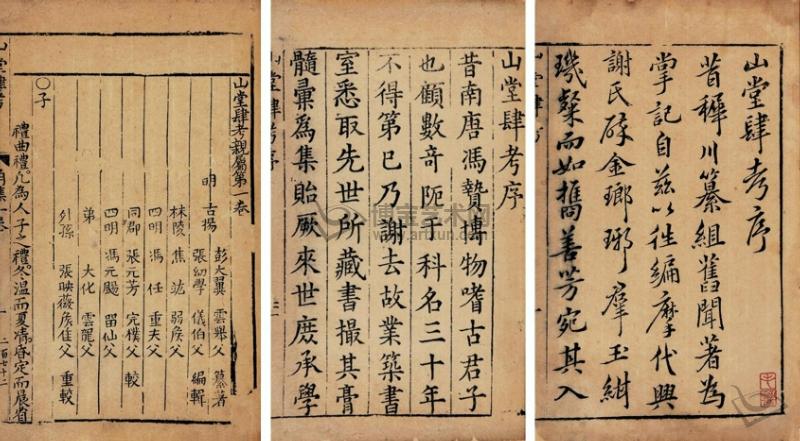 山堂肆考序
昔稺川纂組舊聞著為
掌記自兹以徃編摩代興
謝氏碎金瑯琊羣玉紺
珠粲而如擕善芳宛其入
山堂肆考序
昔南唐馮贄摶物嗜古君子
也顧數奇阨于科名三十年
不得第已乃謝去故業築書
室悉取先世所藏書撮其膏
髓彚爲集貽厥來世庶承學
山堂肆考序
山堂肆考親屬第一卷
明 古揚 彭大翼 雲舉父 纂著
張幼學 儀伯父 編輯
秣陵 焦竑 弱矦父
四明 馮任 重夫父
同郡 張元芳 完樸父 較
四明 馮元颺 留仙父
弟 大化 雲龍父
外孫 張映薇 矦佳父 重較
○子
禮曲禮凡為人子之禮冬温而夏凊昏定而晨省
山堂肆考
角集一卷
一
二百七十二
博宝艺术网